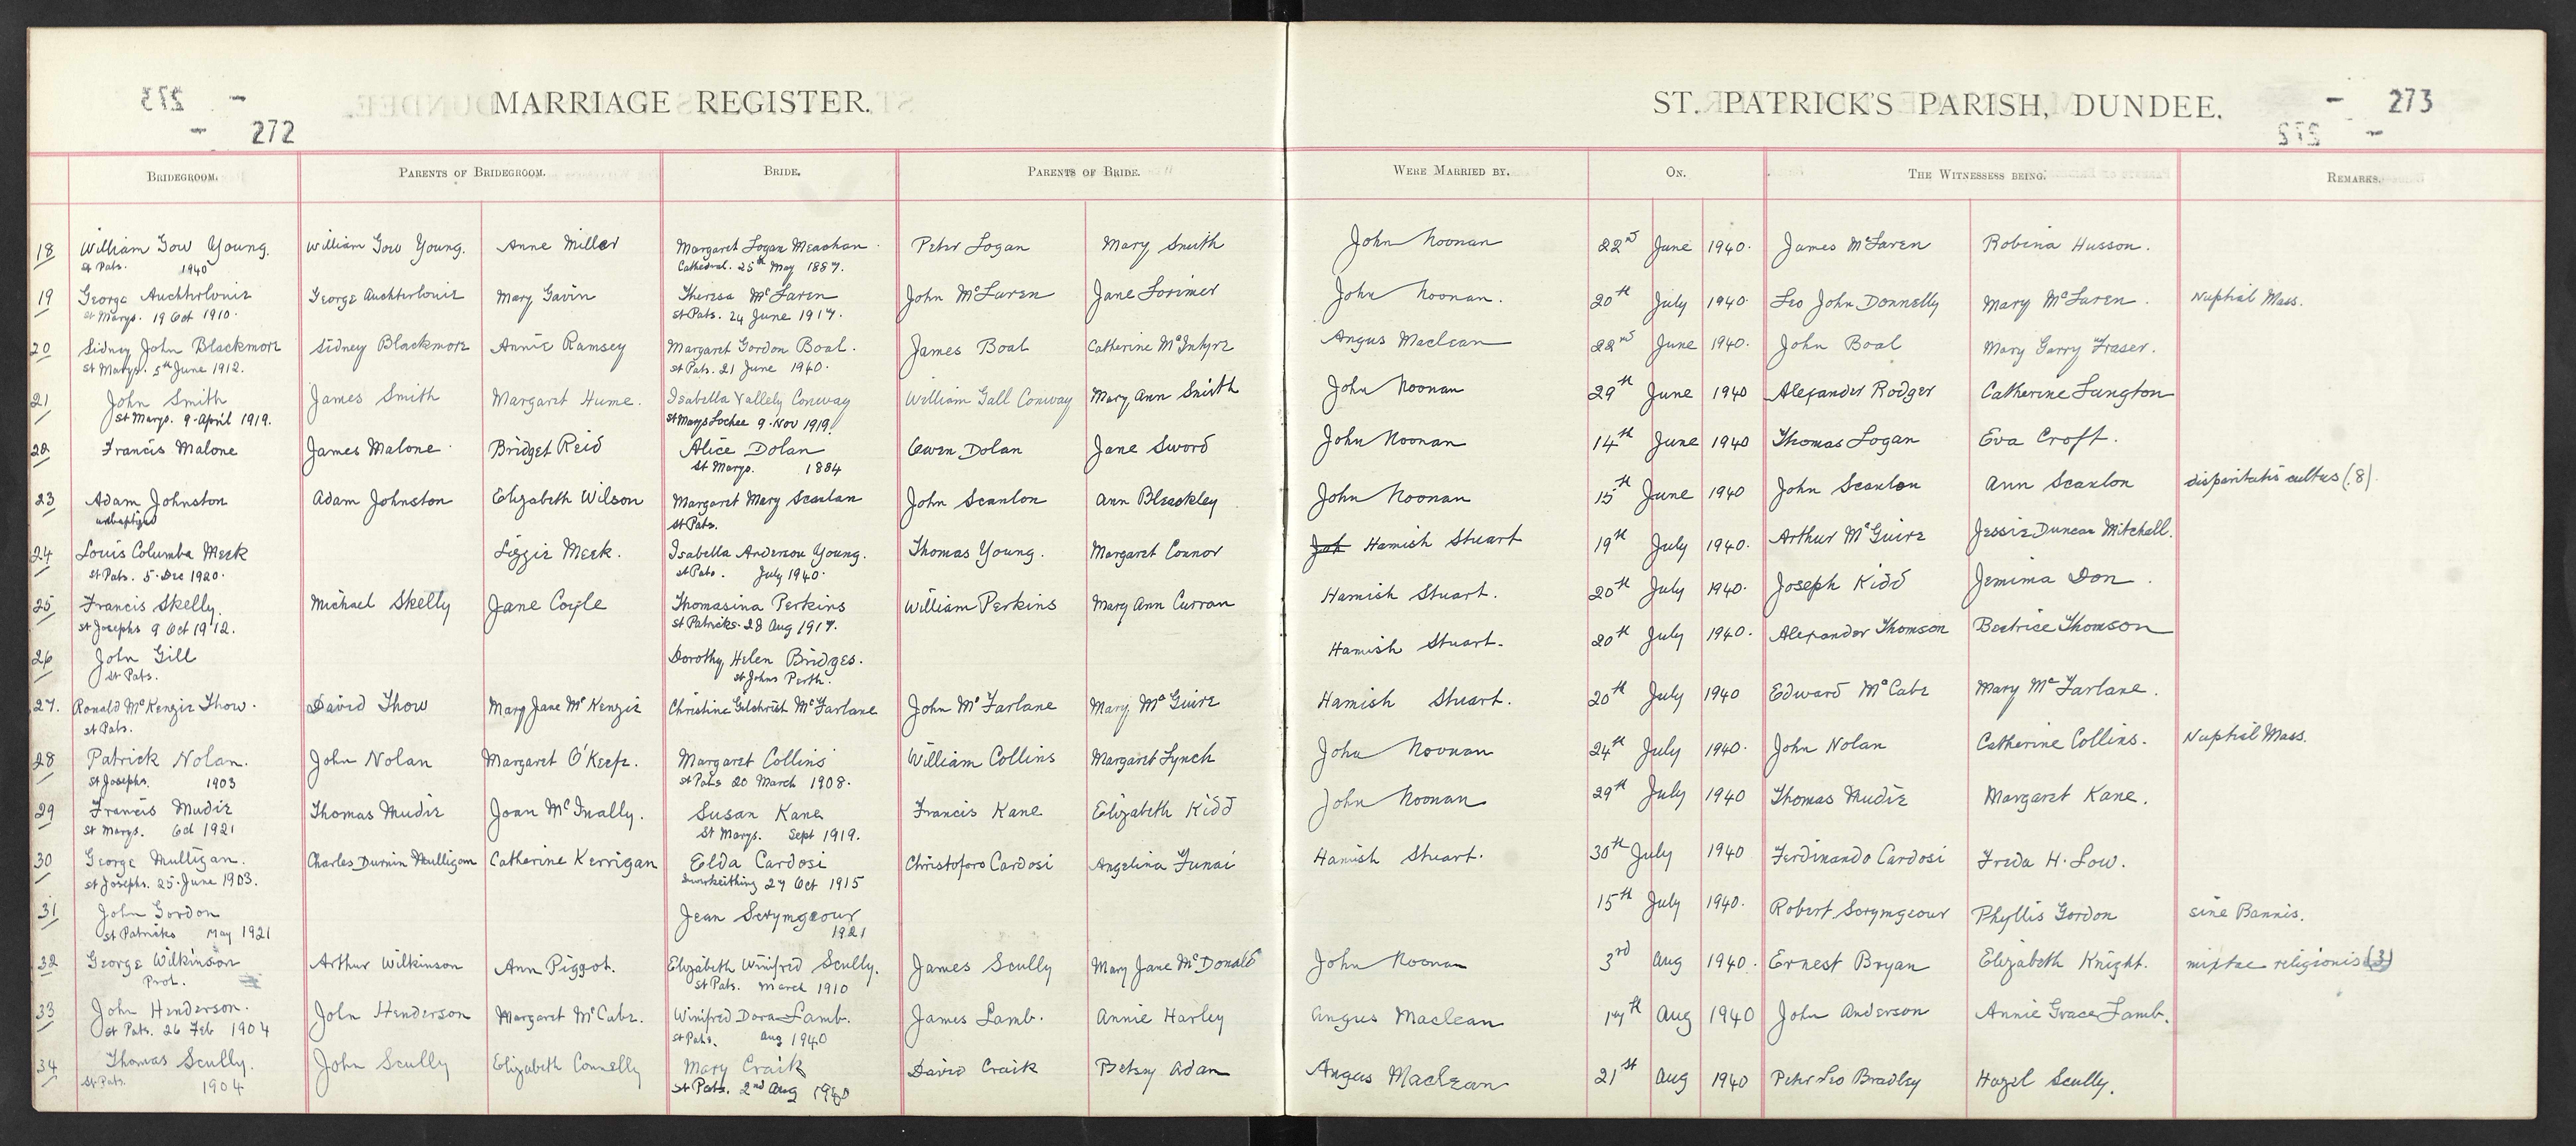 272
MARRIAGE REGISTER.
ST. PATRICK'S PARISH, DUNDEE.
273
BRIDEGROOM. PARENTS OF BRIDEGROOM. BRIDE. PARENTS OF BRIDE. WERE MARRIED BY. ON. THE WITNESSESS BEING. REMARKS.
18 William Gow Young. William Gow Young. Anne Miller Margaret Logan Meachan. Peter Logan Mary Smith John Noonan 22nd June 1940. James McLaren Robina Husson.
St Pats. 1940 Cathedral. 25th May 1887.
19 George Auchterlonie George Auchterlonie Mary Gavin Theresa McLaren John McLaren Jane Lorimer John Noonan. 20th July 1940. Leo John Donnelly Mary McLaren. Nuptial Mass.
St Marys. 19 Oct 1910. St Pats. 24 June 1917.
20 Sidney John Blackmore Sidney Blackmore Annie Ramsey Margaret Gordon Boal. James Boal Catherine McIntyre Angus Maclean 22nd June 1940. John Boal Mary Garry Fraser.
St Marys. 5th June 1912. St Pats. 21 June 1940.
21 John Smith James Smith Margaret Hume. Isabella Vallely Conway William Gall Conway Mary Ann Smith John Noonan 29th June 1940 Alexander Rodger Catherine Langton
St Marys. 9 April 1919. St Marys Lochee 9 Nov 1919.
22 Francis Malone James Malone. Bridget Reid Alice Dolan Owen Dolan Jane Sword John Noonan 14th June 1940 Thomas Logan Eva Croft.
St Marys. 1884
23 Adam Johnston Adam Johnston Elizabeth Wilson Margaret Mary Scanlan John Scanlon Ann Bleackley John Noonan 15th June 1940 John Scanlon Ann Scanlon disparitatis cultus (8).
unbaptized St Pats.
24 Louis Columba Meek Lizzie Meek. Isabella Anderson Young. Thomas Young. Margaret Connor Joh Hamish Stuart 19th July 1940. Arthur McGuire Jessie Duncan Mitchell.
St Pats. 5 Dec 1920. St Pats. July 1940.
25 Francis Skelly. Michael Skelly Jane Coyle Thomasina Perkins William Perkins Mary Ann Curran Hamish Stuart. 20th July 1940. Joseph Kidd Jemima Don.
St Josephs 9 Oct 1912. St Patricks. 28 Aug 1917.
26 John Gill Dorothy Helen Bridges. Hamish Stuart. 20th July 1940. Alexander Thomson Beatrice Thomson
St Pats. St Johns Perth.
27. Ronald McKenzie Thow. David Thow Mary Jane McKenzie Christine Gilchrist McFarlane John McFarlane Mary McGuire Hamish Stuart. 20th July 1940 Edward McCabe Mary McFarlane.
St Pats.
28 Patrick Nolan. John Nolan Margaret O'Keefe. Margaret Collins William Collins Margaret Lynch John Noonan 24th July 1940. John Nolan Catherine Collins. Nuptial Mass.
St Josephs. 1903 St Pats 20 March 1908.
29 Francis Mudie Thomas Mudie Joan McInally. Susan Kane Francis Kane Elizabeth Kidd John Noonan 29th July 1940 Thomas Mudie Margaret Kane.
St Marys. Oct 1921 St Marys. Sept 1919.
30 George Mulligan. Charles Durnin Mulligan Catherine Kerrigan Elda Cardosi Christoforo Cardosi Angelina Funai Hamish Stuart. 30th July 1940 Ferdinando Cardosi Freda H. Low.
St Josephs. 25 June 1903. Inverkeithing 27 Oct 1915
31 John Gordon Jean Scrymgeour 15th July 1940. Robert Scrymgeour Phyllis Gordon sine Bannis.
St Patricks May 1921 1921
32 George Wilkinson Arthur Wilkinson Ann Piggot. Elizabeth Winifred Scully. James Scully Mary Jane McDonald John Noonan 3rd Aug 1940. Ernest Bryan Elizabeth Knight. mixtae religionis (3)
Prot. St Pats. March 1910
33 John Henderson. John Henderson Margaret McCabe. Winifred Dora Lamb. James Lamb. Annie Harley Angus Maclean 17th Aug 1940 John Anderson Annie Grace Lamb.
St Pats. 26 Feb 1904 St Pats. Aug 1940
34 Thomas Scully. John Scully Elizabeth Connelly Mary Craik David Craik Betsy Adam Angus Maclean 21st Aug 1940 Peter Leo Bradley Hazel Scully.
St Pats. 1904 St Pats. 2nd Aug 1940